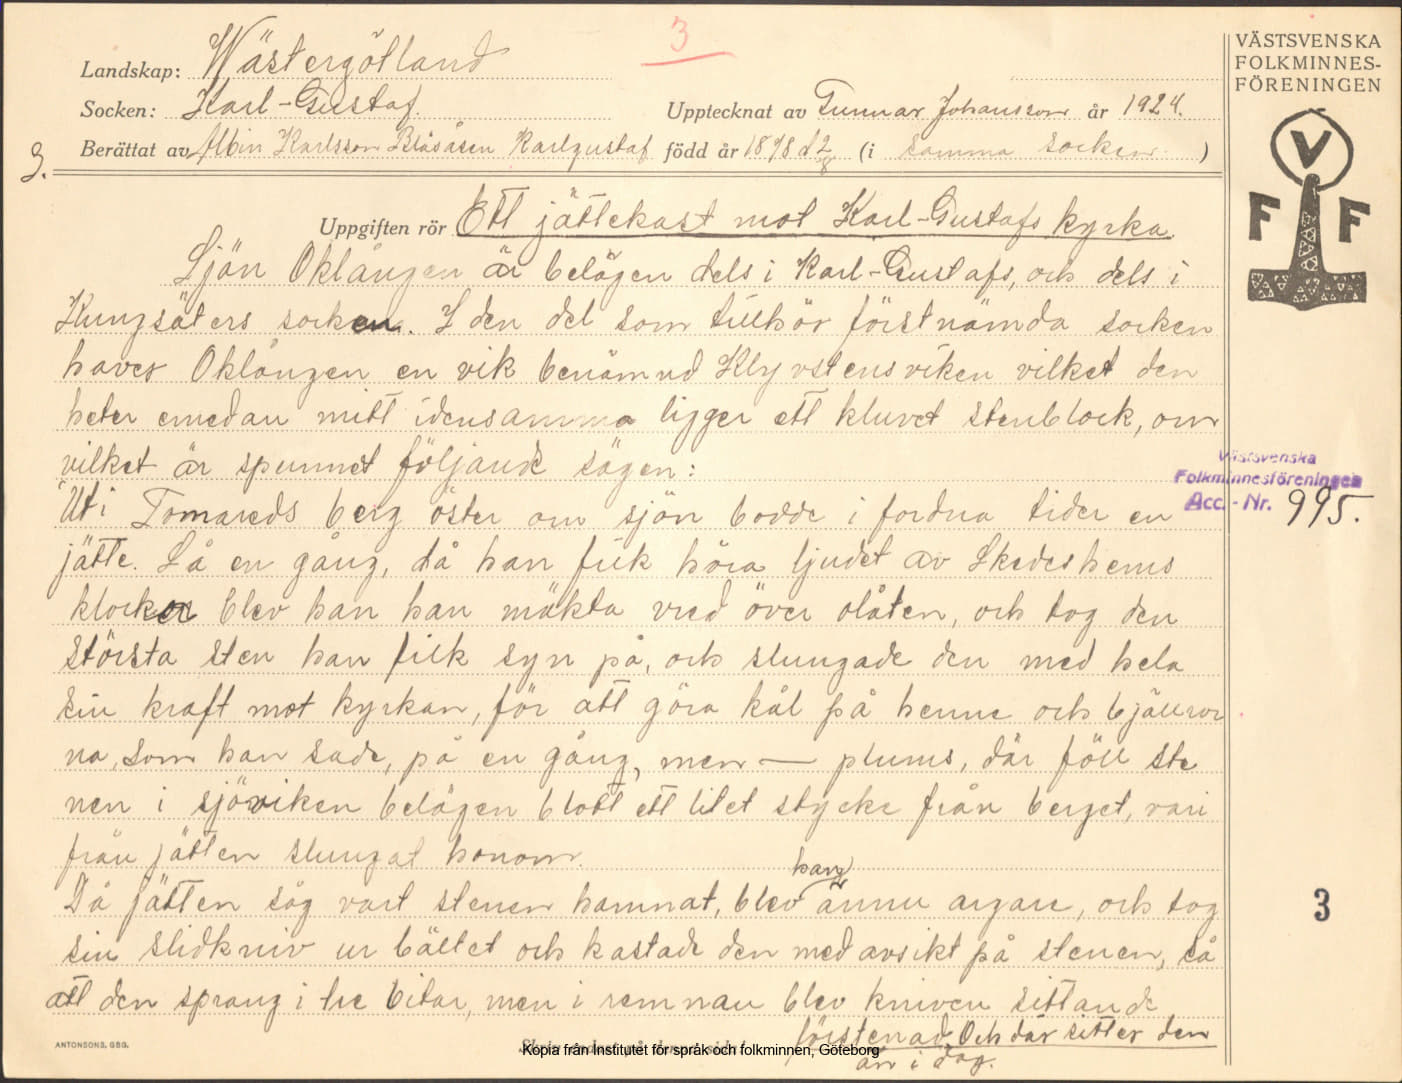 3
Landskap: Wästergötland
Socken: Karl-Gustaf.
Upptecknat av Gunnar Johansson år 1924.
Berättat av Albin Karlsson Blåsåsen Karlgustaf född år 1898 d 2/8 (i samma socken.)
9.
Uppgiften rör Ett jättekast mot Karl-Gustafs kyrka.
Sjön Oklången är belägen dels i Karl-Gustafs, och dels i
Kungsäters socken. I den del som tillhör förstnämda socken
haver Oklången en vik benämnd Klyvstensviken vilket den
heter emedan mitt idensamma ligger ett kluvet stenblock, om
vilket är spunnet följande sägen:
Uti Tomareds berg öster om sjön bodde i fordna tider en
jätte. Så en gång, då han fick höra ljudet av Skedeshems
klockor blev han han mäkta vred över olåten, och tog den
största sten han fick syn på, och slungade den med hela
sin kraft mot kyrkan, för att göra kål på henne och bjällror
na, som han sade, på en gång, men — plums, där föll ste
nen i sjöviken belägen blott ett litet stycke från berget, vari
från jätten slungat honom.
Då jätten såg vart stenen hamnat, blev han ännu argare, och tog
sin slidkniv ur bältet och kastade den med avsikt på stenen, så
att den sprang i tre bitar, men i remnan blev kniven sittande
förstenad. Och där sitter den
än i dag.
ANTONSONS, GBG.
Kopia från Institutet för språk och folkminnen, Göteborg
VÄSTSVENSKA
FOLKMINNES-
FÖRENINGEN
V
F F
Västsvenska
Folkminnesföreningen
Acc.-Nr. 995.
3